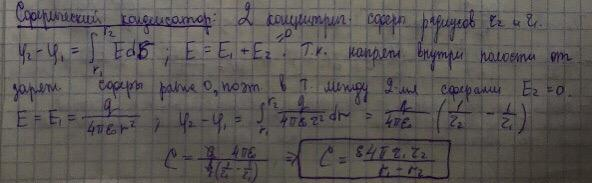 Сферический конденсатор: 2 концентрич. сферы радиусов r₂ и r₁.
φ₂-φ₁ = ∫_{r₁}^{r₂} Edr ; E = E₁ + E₂ =0 . Т.к. напряж внутри полости от
заряж. сферы равна 0, поэт. в т. между 2-мя сферами E₂ = 0.
E = E₁ = q/4πε₀r² ; φ₂ - φ₁ = ∫_{r₁}^{r₂} q/4πε₀r² dr = q/4πε₀ (1/r₂ - 1/r₁)
C = q 4πε₀/q(1/r₂ - 1/r₁) ⇒ C = ε4πr₁r₂/r₁-r₂